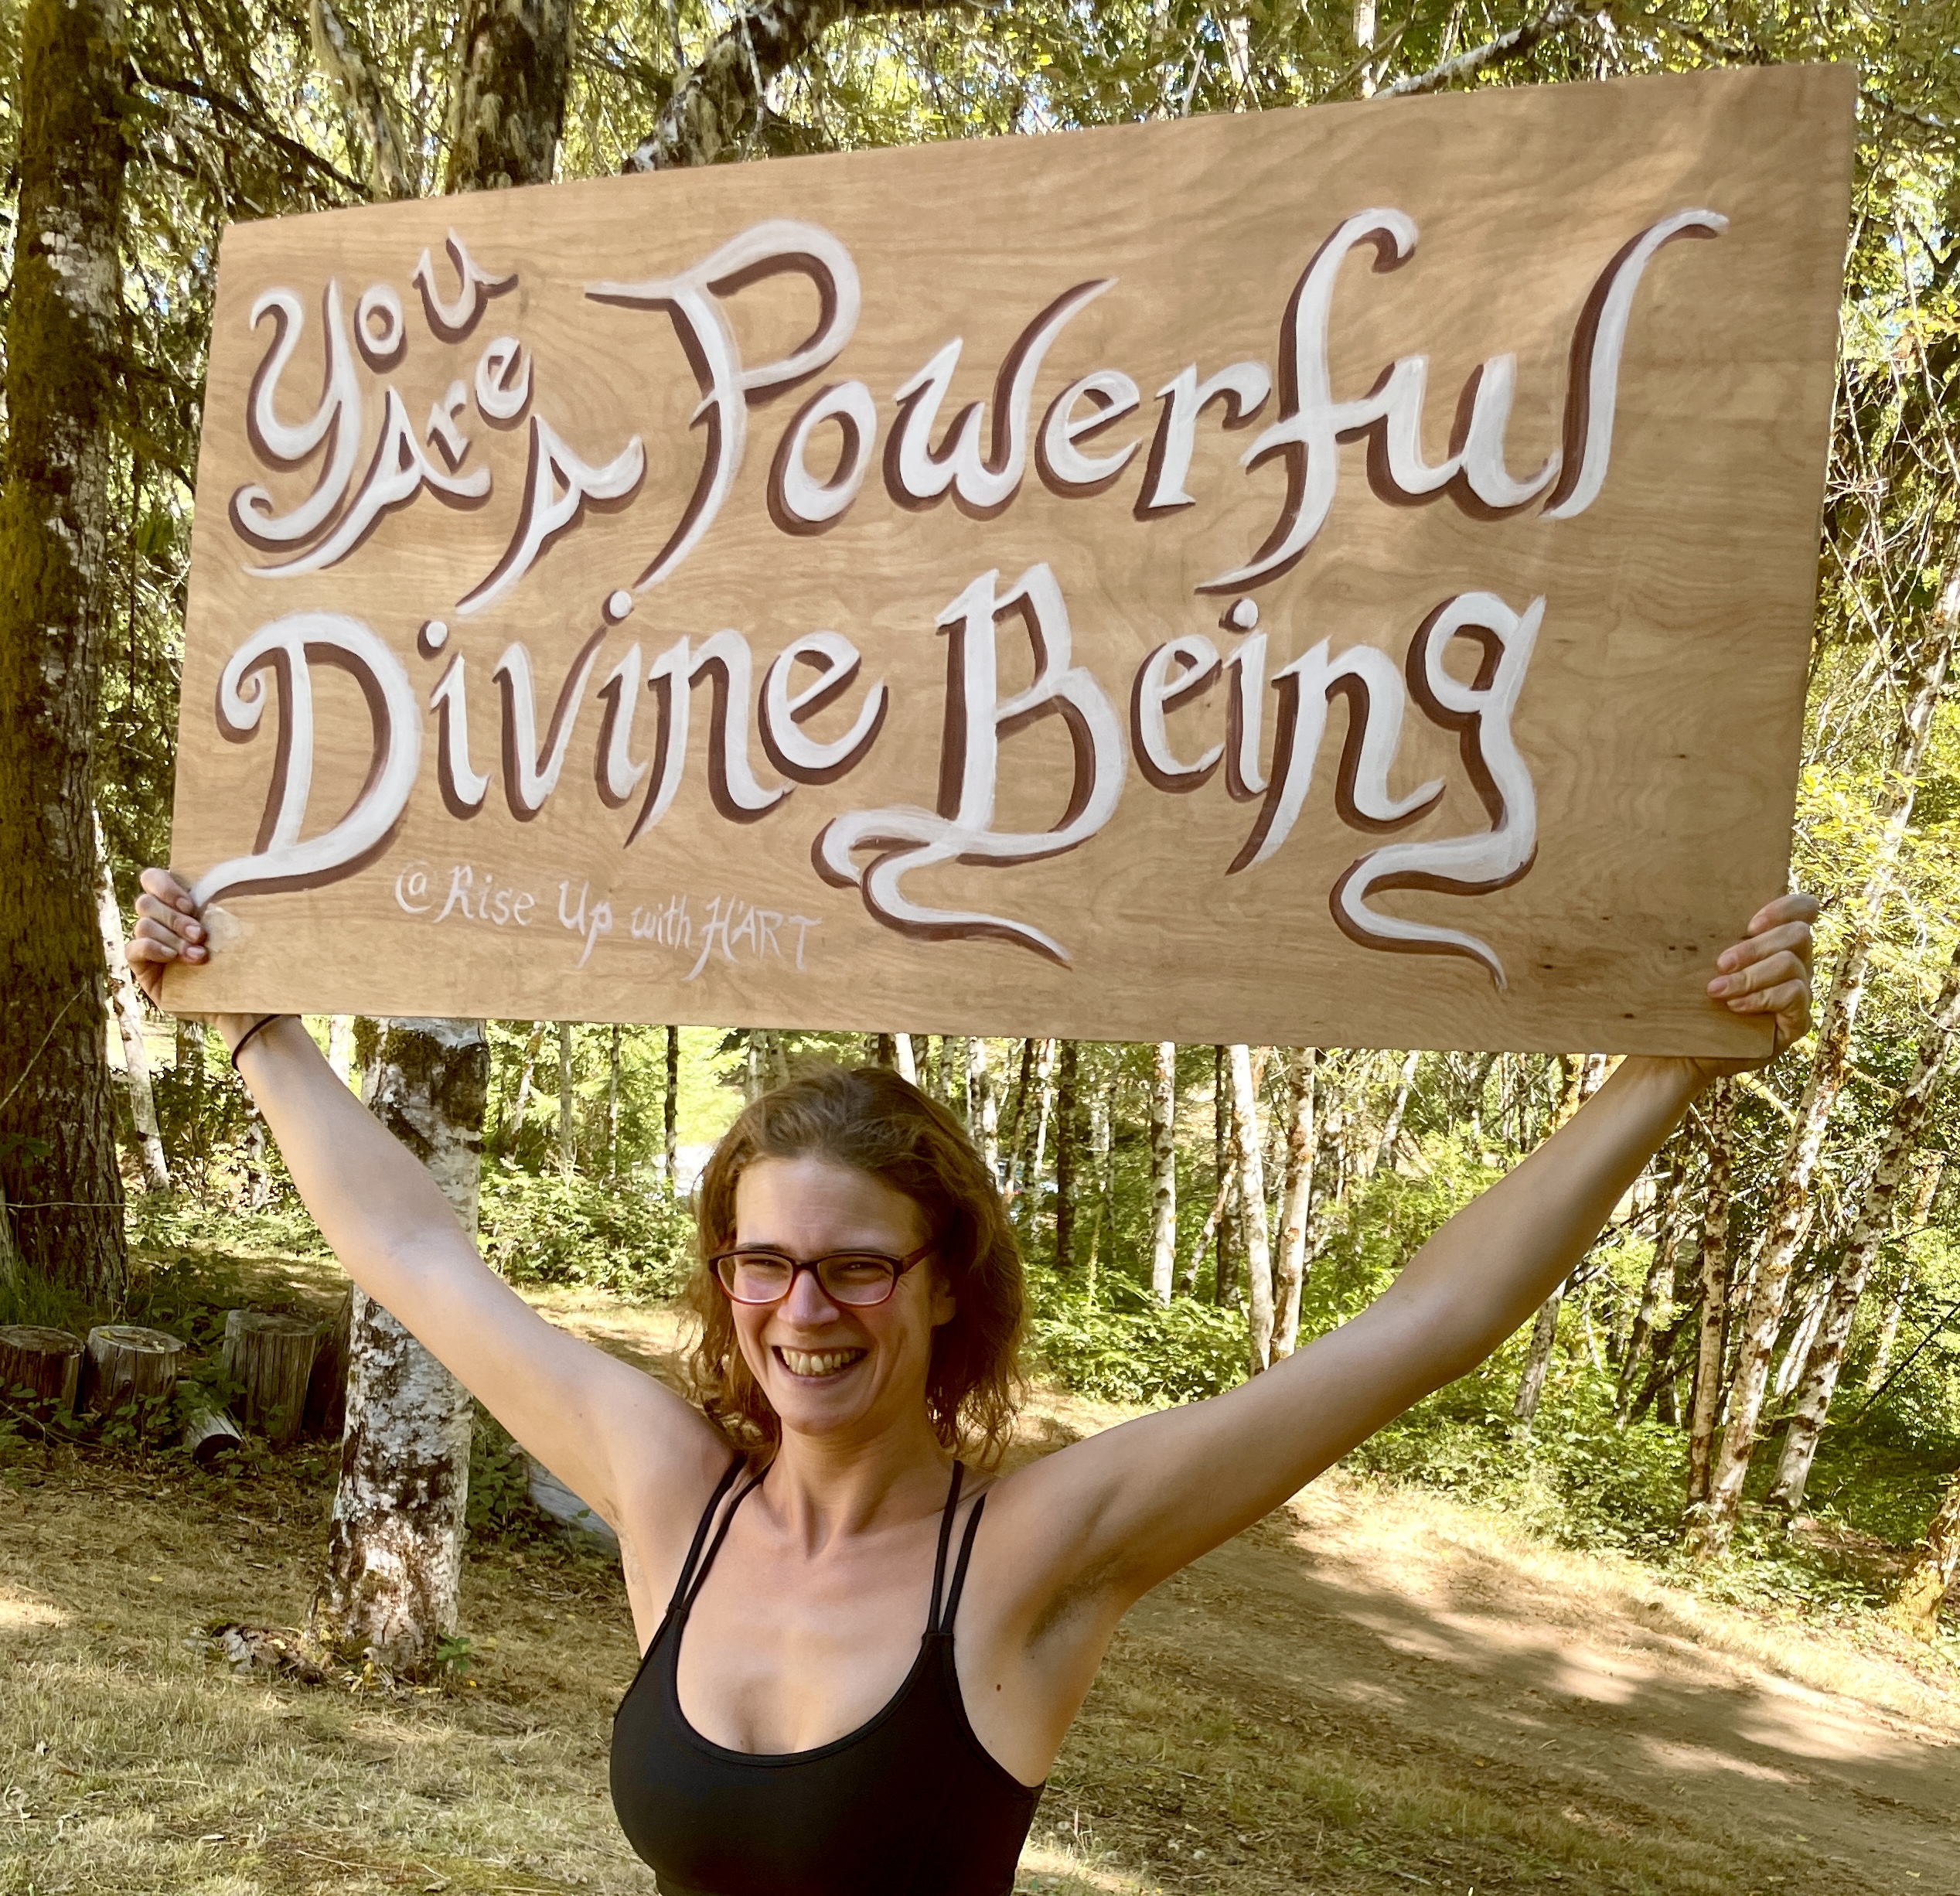 You
Are
A Powerful
Divine Being
@ Rise Up with H'ART